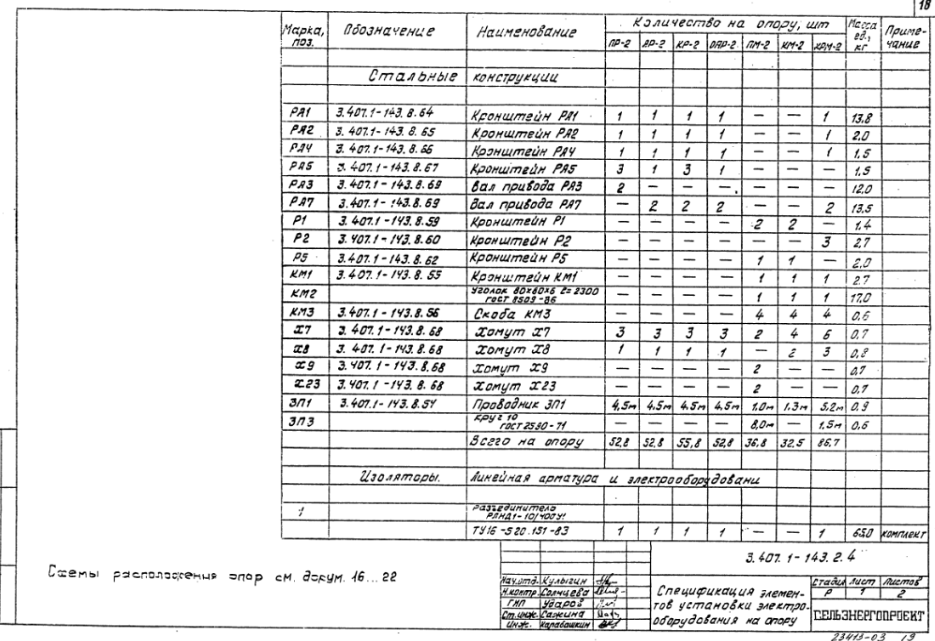 18
Марка, поз. Обозначение Наименование Количество на опору, шт Масса ед., кг Приме-чание
ПР-2 АР-2 КР-2 ОАР-2 ПМ-2 КМ-2 КРМ-2
Стальные конструкции
РА1 3.407.1-143.8.64 Кронштейн РА1 1 1 1 1 — — 1 13,8
РА2 3.407.1-143.8.65 Кронштейн РА2 1 1 1 1 — — 1 2,0
РА4 3.407.1-143.8.66 Кронштейн РА4 1 1 1 1 — — 1 1,5
РА5 3.407.1-143.8.67 Кронштейн РА5 3 1 3 1 — — — 1,5
РА3 3.407.1-143.8.69 Вал привода РА3 2 — — — — — — 12,0
РА7 3.407.1-143.8.69 Вал привода РА7 — 2 2 2 — — 2 13,5
Р1 3.407.1-143.8.59 Кронштейн Р1 — — — — 2 2 — 1,4
Р2 3.407.1-143.8.60 Кронштейн Р2 — — — — — — 3 2,7
Р5 3.407.1-143.8.62 Кронштейн Р5 — — — — 1 1 — 2,0
КМ1 3.407.1-143.8.55 Кронштейн КМ1 — — — — 1 1 1 2,7
КМ2 Уголок 80х80х6 ℓ=2300 ГОСТ 8509-86 — — — — 1 1 1 17,0
КМ3 3.407.1-143.8.56 Скоба КМ3 — — — — 4 4 4 0,6
Х7 3.407.1-143.8.68 Хомут Х7 3 3 3 3 2 4 6 0,7
Х8 3.407.1-143.8.68 Хомут Х8 1 1 1 1 — 2 3 0,8
Х9 3.407.1-143.8.68 Хомут Х9 — — — — 2 — — 0,7
Х23 3.407.1-143.8.68 Хомут Х23 — — — — 2 — — 0,7
ЗП1 3.407.1-143.8.54 Проводник ЗП1 4,5м 4,5м 4,5м 4,5м 1,0м 1,3м 5,2м 0,9
ЗП3 Круг 10 ГОСТ 2590-71 — — — — 8,0м — 1,5м 0,6
Всего на опору 52,8 52,8 55,8 52,8 36,8 32,5 86,7
Изоляторы. Линейная арматура и электрооборудовани
1 Разъединитель РЛНД1-10/400У1
ТУ16-520.151-83 1 1 1 1 — — 1 65,0 комплект
3.407.1-143.2.4
Схемы расположения опор см. докум. 16...22
Нач.отд. Кулыгин
Н.контр. Солнцева
ГИП Ударов
Ст.инж. Сажина
Инж. Карабашкин
Спецификация элемен-
тов установки электро-
оборудования на опору
Стадия Лист Листов
Р 1 2
СЕЛЬЭНЕРГОПРОЕКТ
23413-03 19